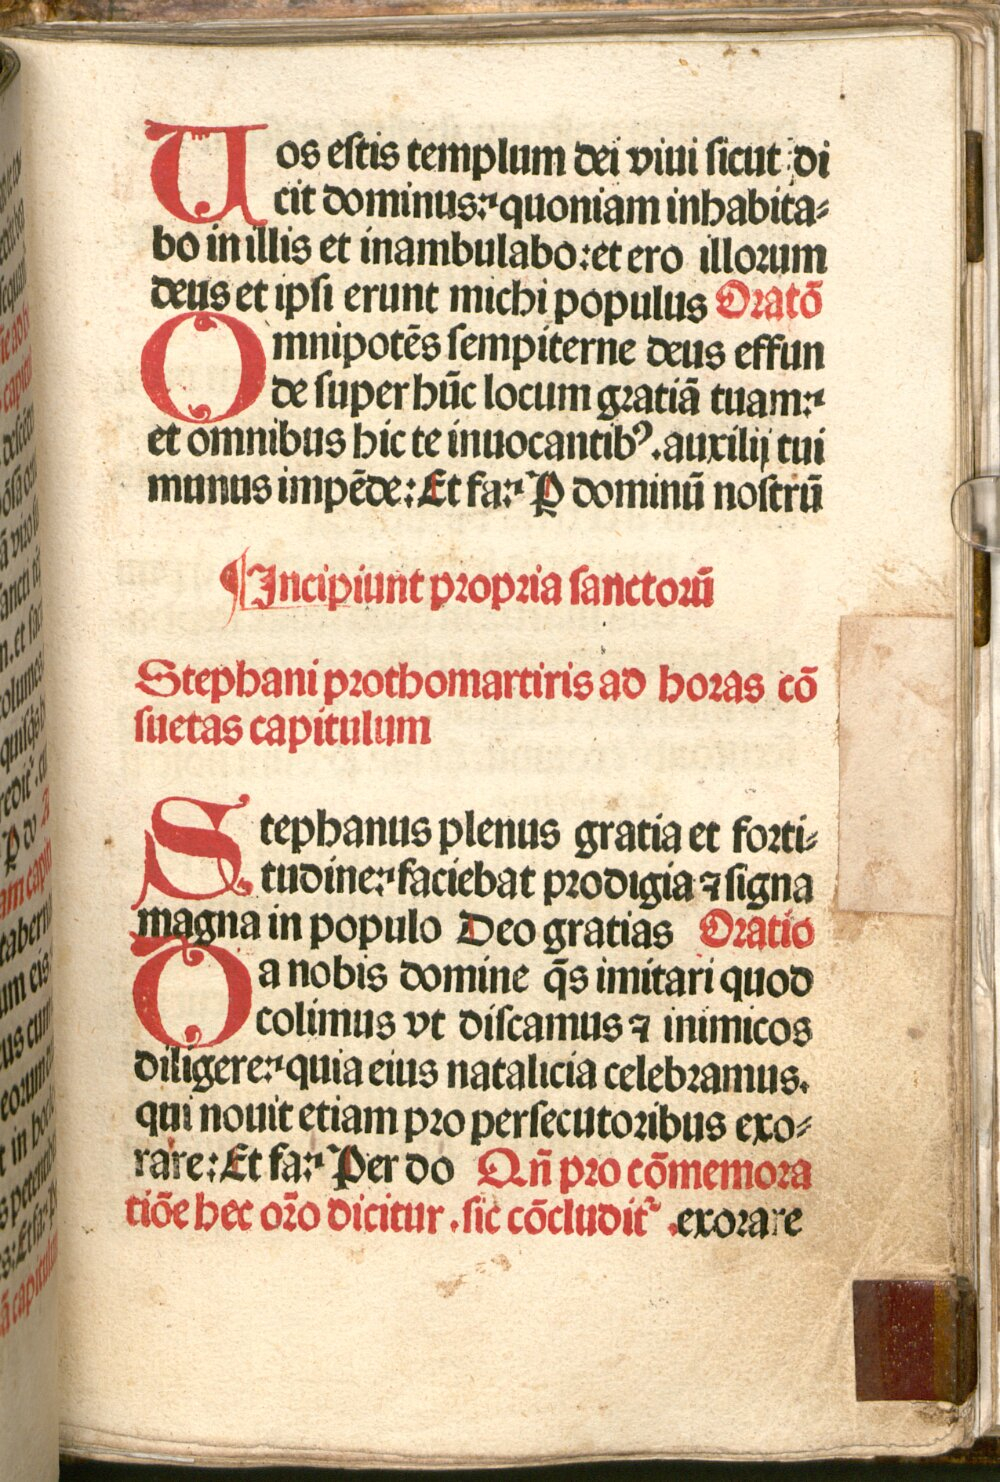 Uos estis templum dei viui sicut di
cit dominus: quoniam inhabita-
bo in illis et inambulabo: et ero illorum
deus et ipsi erunt michi populus Oratō
Omnipotēs sempiterne deus effun
de super hūc locum gratiā tuam:
et omnibus hic te inuocantibꝰ. auxilij tui
munus impēde: Et fa: P dominū nostrū
¶Incipiunt propria sanctorū
Stephani prothomartiris ad horas cō
suetas capitulum
Stephanus plenus gratia et forti-
tudine: faciebat prodigia ⁊ signa
magna in populo Deo gratias Oratio
Da nobis domine q̄s imitari quod
colimus vt discamus ⁊ inimicos
diligere: quia eius natalicia celebramus.
qui nouit etiam pro persecutoribus exo-
rare: Et fa: Per do Qn̄ pro cōmemora
tiōe hec or̄o dicitur. sic cōcludit᷑. exorare